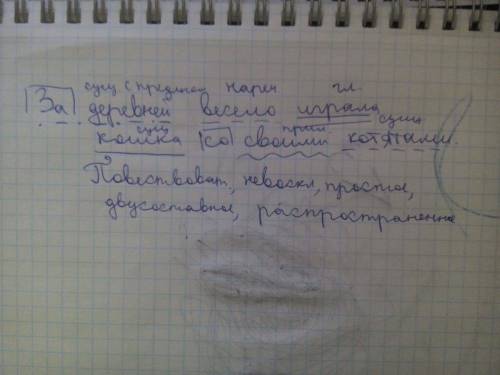 сущ с предлогом нареч гл.
За деревней весело играла
сущ прил сущ
кошка со своими котятами.
Повествоват, невоскл, простое,
двусоставное, распространенное